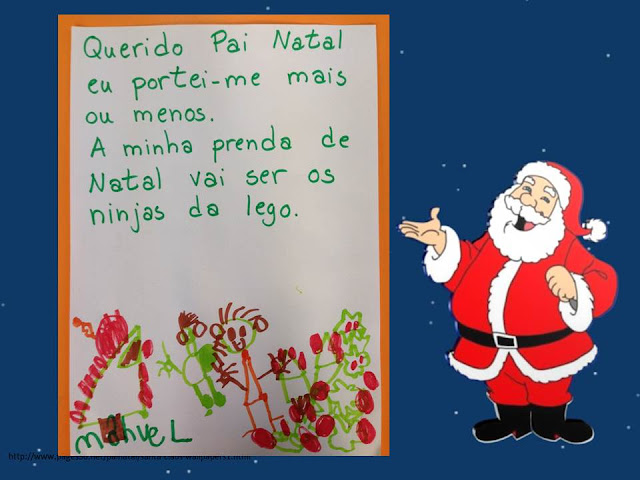 Querido Pai Natal
eu portei-me mais
ou menos.
A minha prenda de
Natal vai ser os
ninjas da lego.
Manuel
http://www.